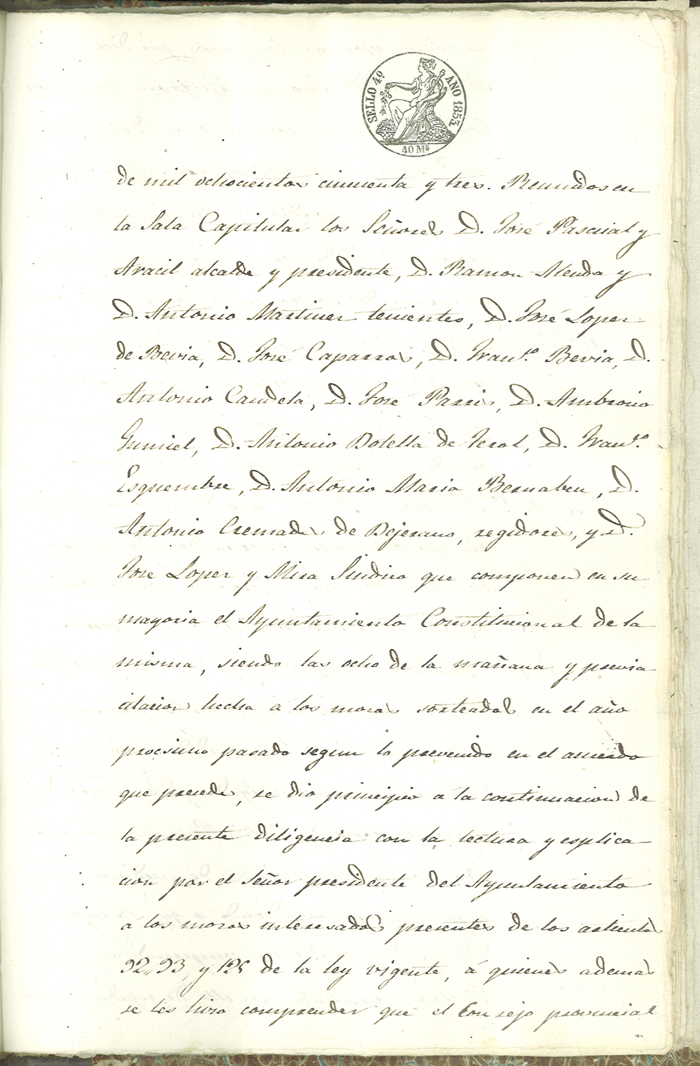 SELLO 4º AÑO 1853.
40 Mˢ
de mil ochocientos cincuenta y tres. Reunidos en
la Sala Capitular los Señores D. José Pascual y
Aracil alcalde y presidente, D. Ramon Alenda y
D. Antonio Martinez tenientes, D. José Lopez
de Bevia, D. José Caparros, D. Franᶜᵒ Bevia, D.
Antonio Candela, D. Jose Parres, D. Ambrosio
Gumiel, D. Antonio Botella de Terol, D. Franᶜᵒ
Esquembre, D. Antonio Maria Bernabeu, D.
Antonio Cremades de Bejerano, regidores, y D.
Jose Lopez y Mira Sindico que componen en su
mayoria el Ayuntamiento Constitucional de la
misma, siendo las ocho de la mañana y previa
citacion hecha a los mozos sorteados en el año
procsimo pasado segun lo prevenido en el acuerdo
que precede, se dio principio a la continuacion de
la presente diligencia con la lectura y esplica-
cion por el Señor presidente del Ayuntamiento
á los mozos interesados presentes de los articulos
92, 93, y 125 de la ley vigente, á quienes ademas
se les hizo comprender que el Consejo provincial